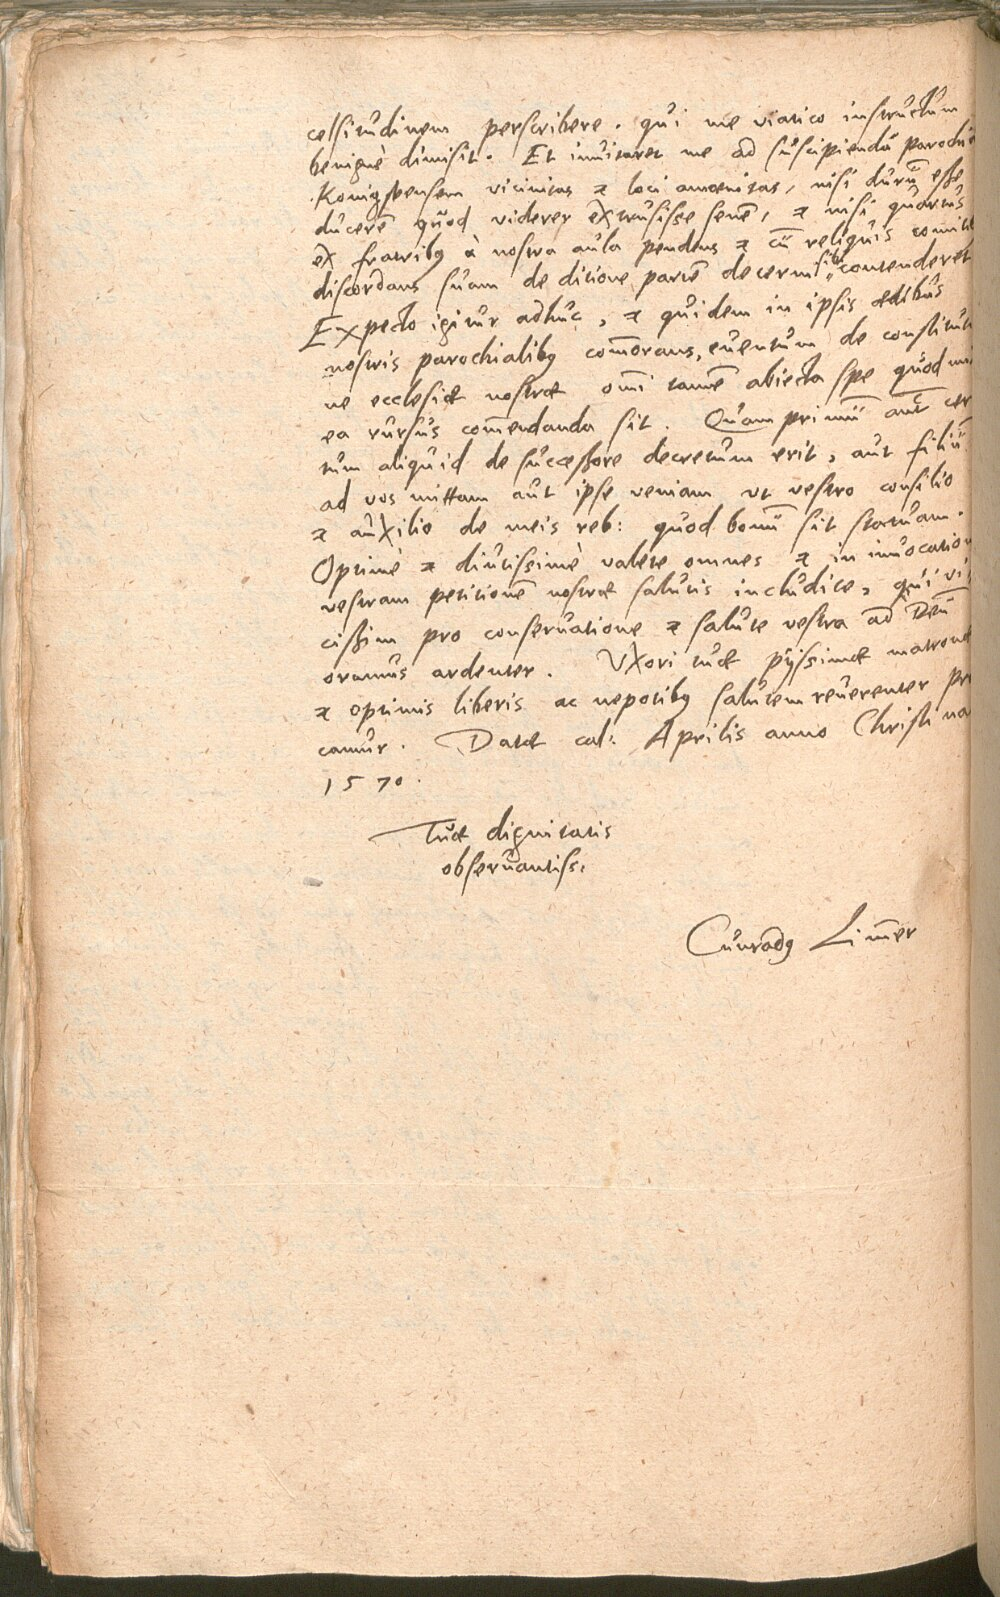 celsitudinem perscribere. qui me viatico instructum
benignè dimisit. Et inuitaret me ad suscipiendā parochiā
Konigspensem vicinitas & loci amoenitas, nisi durū esse
ducerē quod viderer extrusisse senē, & nisi quartus
ex fratribꝰ à nostra aula pendens & cū reliquis comitib
discordans suam de ditione partē decerni sibi contenderet
Expecto igitur adhuc, & quidem in ipsis ædibus
nostris parochialibꝰ com̄orans, euentum de constitut
ne ecclesiæ nostræ om̄i tamē abiecta spe quod mi
ea rursus com̄endanda sit. Quam primū aut̄ cer
tum aliquid de successore decretum erit, aut filiū
ad vos mittam aut ipse veniam vt vestro consilio
& auxilio de meis reb: quod bonū sit statuam.
Optimè & diutissimè valete omnes & in inuocation
vestram petitionē nostræ salutis includite, qui vi
cissim pro conseruatione & salute vestra ad Deū
oramus ardenter. Vxori tuæ pijssimæ matronæ
& optimis liberis ac nepotibꝰ salutem reuerenter pre
camur. Datæ cal: Aprilis anno Christi na
1570.
Tuæ dignitatis
obseruantiss:
Cunradꝰ Lim̄er